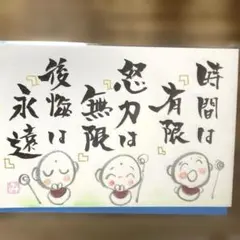 時間は
有限
努力は
無限
後悔は
永遠